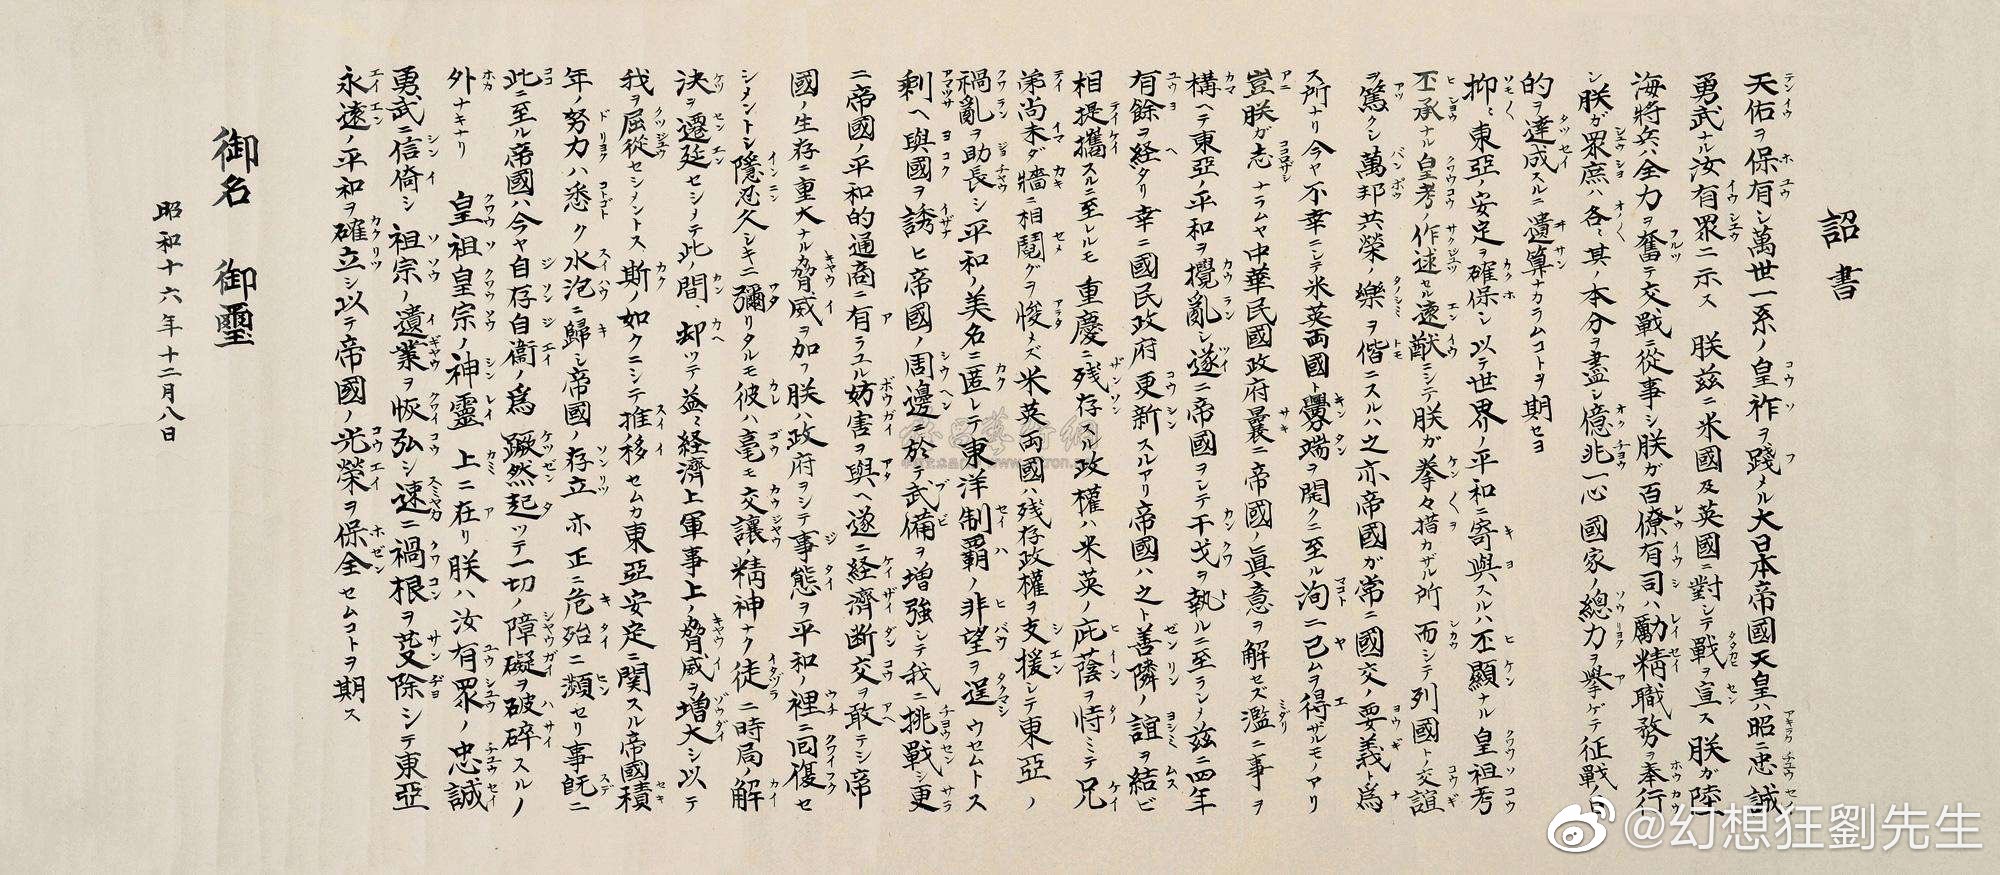 詔書
天佑ヲ保有シ萬世一系ノ皇祚ヲ踐メル大日本帝國天皇ハ昭ニ忠誠
勇武ナル汝有眾ニ示ス 朕茲ニ米國及英國ニ對シテ戰ヲ宣ス朕ガ陸
海將兵ハ全力ヲ奮テ交戰ニ從事シ朕ガ百僚有司ハ勵精職務ヲ奉行
シ朕ガ眾庶ハ各〻其ノ本分ヲ盡シ億兆一心國家ノ總力ヲ擧ゲテ征戰ノ目
的ヲ達成スルニ遺算ナカラムコトヲ期セヨ
抑〻東亞ノ安定ヲ確保シ以テ世界ノ平和ニ寄與スルハ丕顯ナル皇祖考
丕承ナル皇考ノ作述セル遠猷ニシテ朕ガ拳々措カザル所 而シテ列國トノ交誼
ヲ篤クシ萬邦共榮ノ樂ヲ偕ニスルハ之亦帝國ガ常ニ國交ノ要義ト爲
ス所ナリ今ヤ不幸ニシテ米英両國ト釁端ヲ開クニ至ル洵ニ已ムヲ得ザルモノアリ
豈朕ガ志ナラムヤ中華民國政府曩ニ帝國ノ眞意ヲ解セズ濫ニ事ヲ
構ヘテ東亞ノ平和ヲ攪亂シ遂ニ帝國ヲシテ干戈ヲ執ルニ至ラシメ茲ニ四年
有餘ヲ経タリ幸ニ國民政府更新スルアリ帝國ハ之ト善隣ノ誼ヲ結ビ
相提攜スルニ至レルモ 重慶ニ残存スル政權ハ米英ノ庇蔭ヲ恃ミテ兄
弟尚未ダ牆ニ相鬩グヲ悛メズ米英両國ハ残存政權ヲ支援シテ東亞ノ
禍亂ヲ助長シ平和ノ美名ニ匿レテ東洋制覇ノ非望ヲ逞ウセムトス
剰ヘ與國ヲ誘ヒ帝國ノ周邊ニ於テ武備ヲ増強シテ我ニ挑戰シ更
ニ帝國ノ平和的通商ニ有ラユル妨害ヲ與ヘ遂ニ経濟断交ヲ敢テシ帝
國ノ生存ニ重大ナル脅威ヲ加フ朕ハ政府ヲシテ事態ヲ平和ノ裡ニ囘復セ
シメントシ隱忍久シキニ彌リタルモ彼ハ毫モ交讓ノ精神ナク徒ニ時局ノ解
決ヲ遷延セシメテ此ノ間、却ツテ益〻経濟上軍事上ノ脅威ヲ増大シ以テ
我ヲ屈從セシメントス斯ノ如クニシテ推移セムカ東亞安定ニ関スル帝國積
年ノ努力ハ悉ク水泡ニ歸シ帝國ノ存立亦正ニ危殆ニ瀕セリ事既ニ
此ニ至ル帝國ハ今ヤ自存自衞ノ爲 蹶然起ツテ一切ノ障礙ヲ破碎スルノ
外ナキナリ 皇祖皇宗ノ神靈 上ニ在リ朕ハ汝有眾ノ忠誠
勇武ニ信倚シ 祖宗ノ遺業ヲ恢弘シ速ニ禍根ヲ芟除シテ東亞
永遠ノ平和ヲ確立シ以テ帝國ノ光榮ヲ保全セムコトヲ期ス
御名 御璽
昭和十六年十二月八日
@幻想狂劉先生